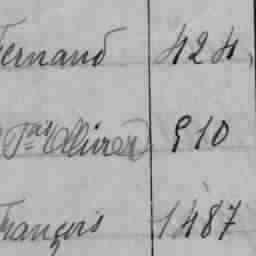 Fernand 424
Olivier 910
François 1487